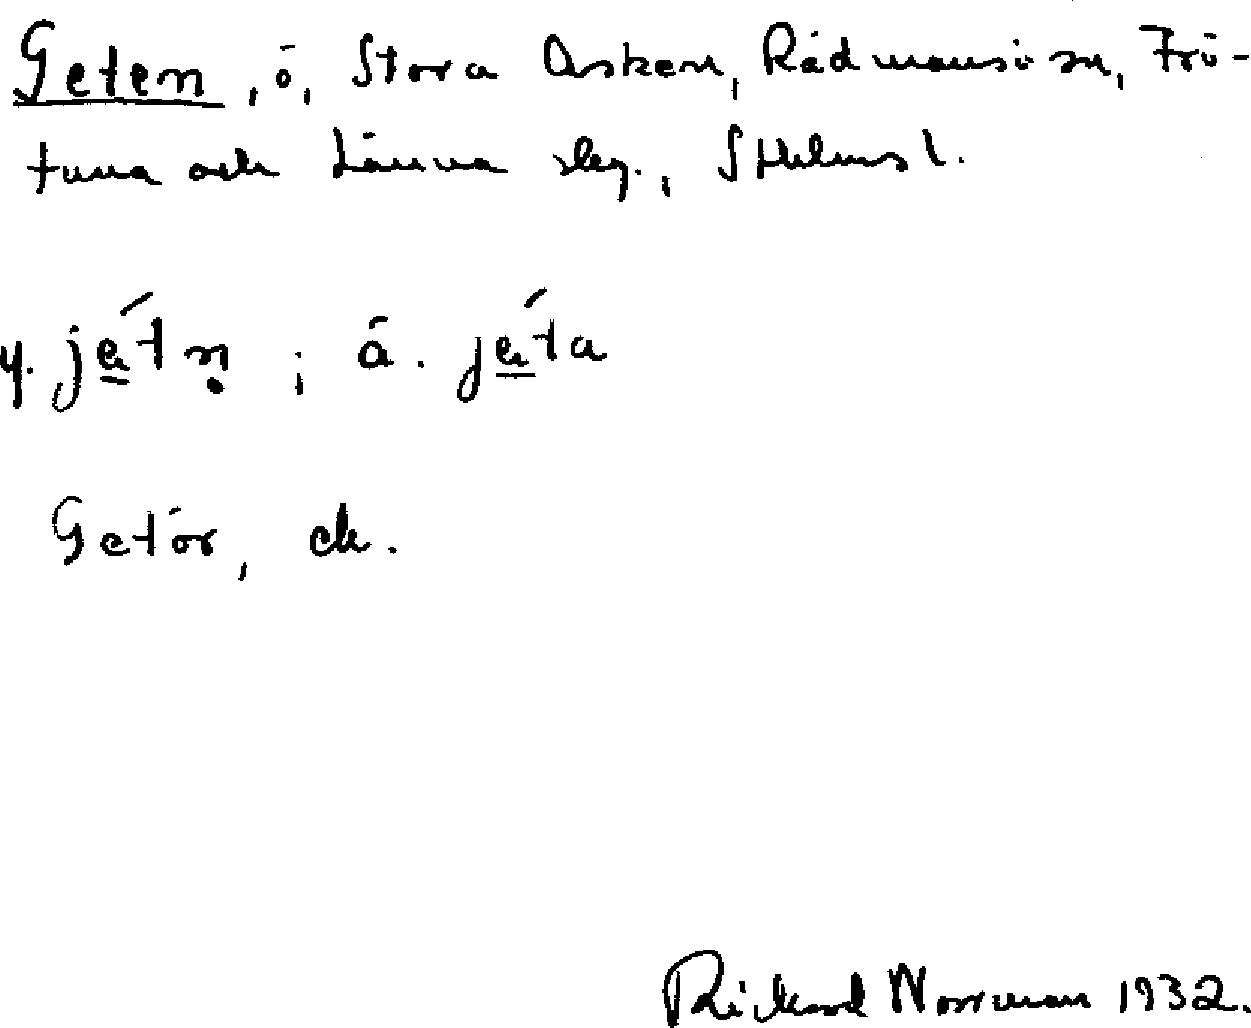 Geten, ö, Stora Asken, Rådmansö sn, Frö-
tuna och Länna skg., Sthlms l.
y. jé̲tṇ; ä. jé̲ta
Getör, ek.
Rickard Norrman 1932.